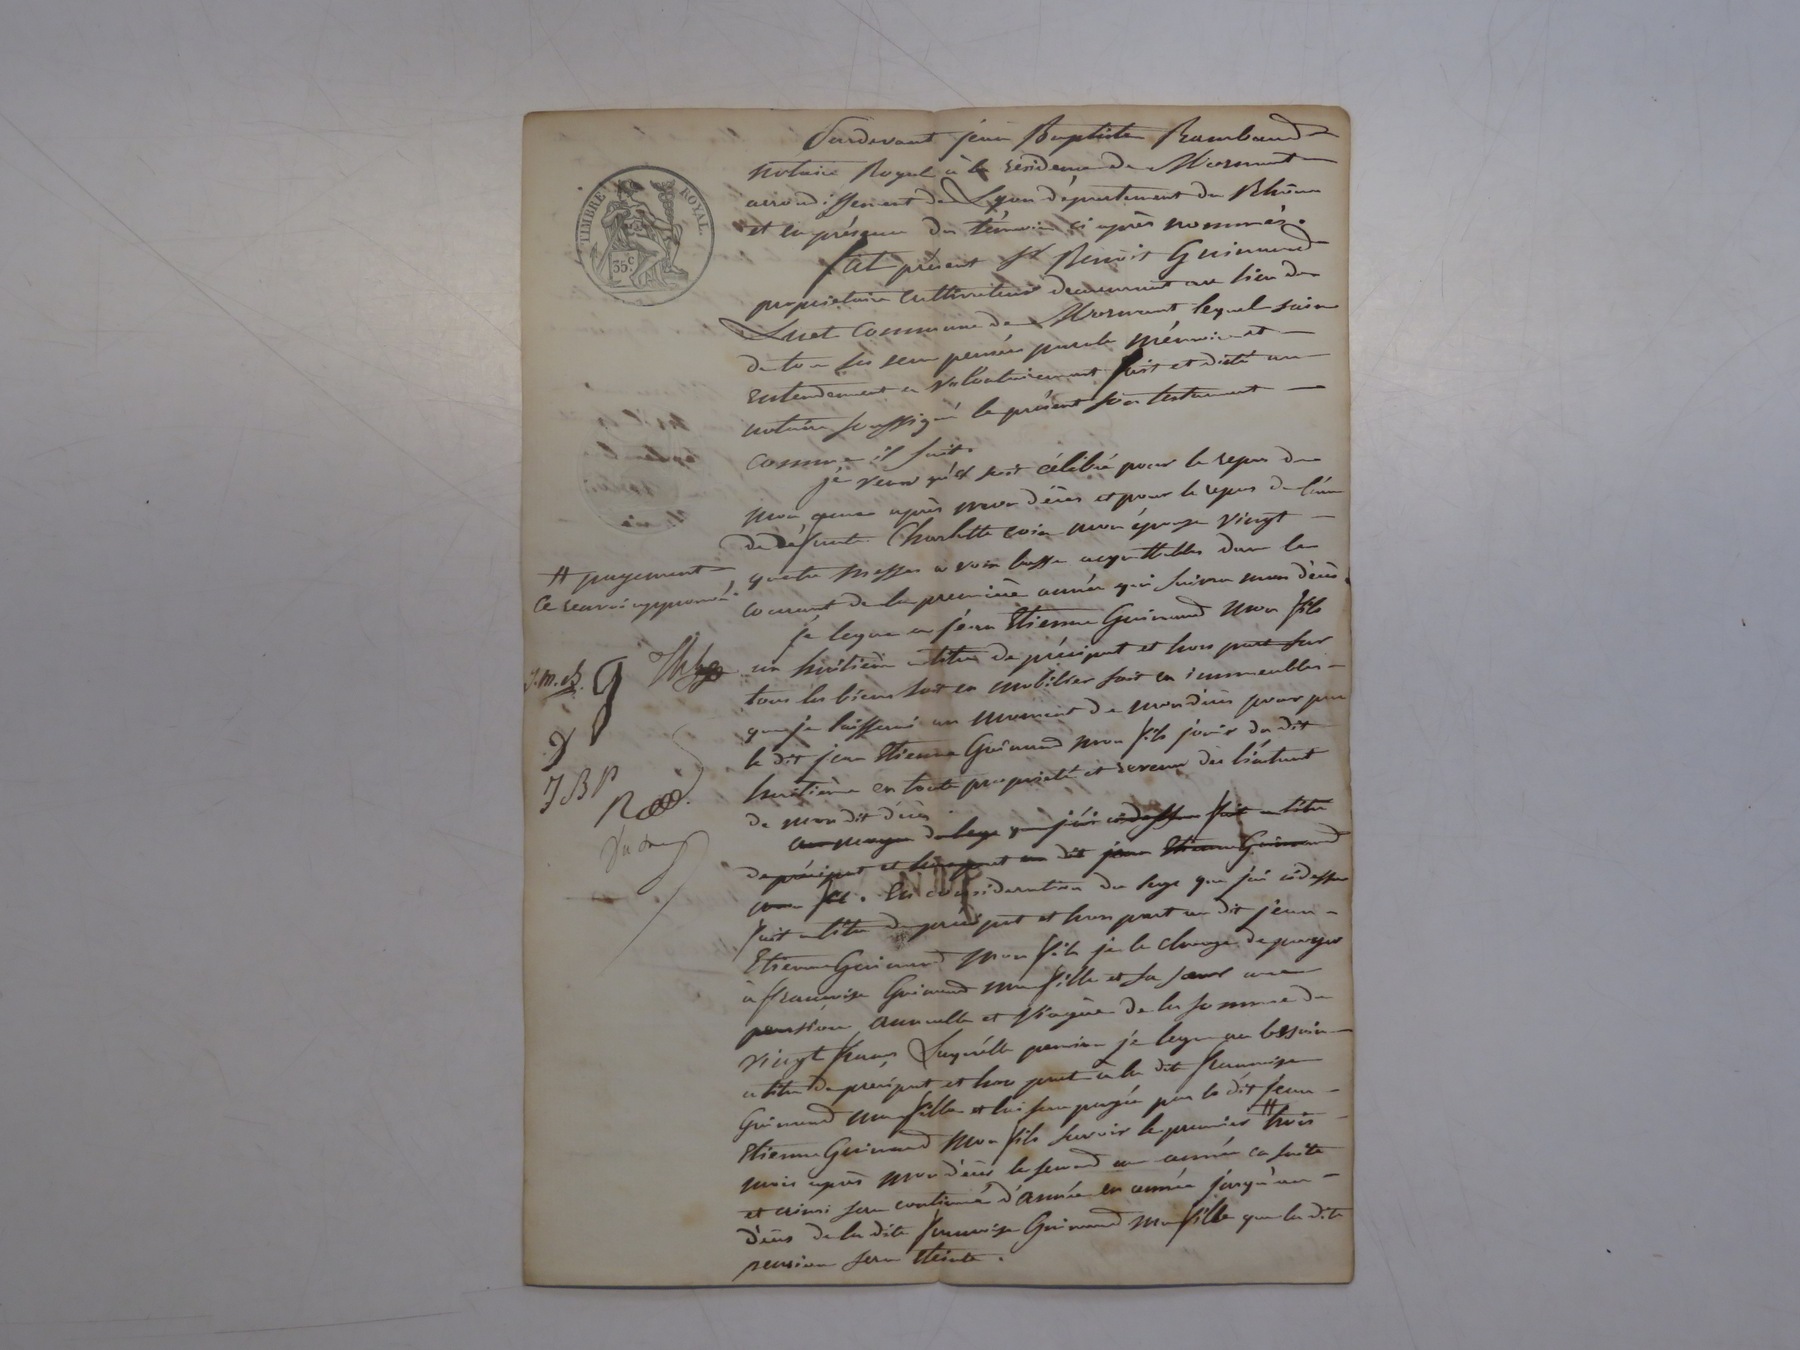 TIMBRE ROYAL.
35 c
Pardevant jean Baptiste Rambaud
notaire Royal à la résidence de Mornant
arrondissement de Lyon département du Rhône
et en présence des témoins ci après nommés.
fut présent sr Benoit Guinand
propriétaire cultivateur demeurant au lieu de
Luet commune de Mornant lequel sain
de tous ses sens pensée parole mémoire et
entendement a volontairement fait et dicté au
notaire soussigné le présent son testament
comme il suit.
je veux qu'il soit célébré pour le repos de
mon ame après mon décès et pour le repos de l'âme
de défunte Charlotte mon épouse vingt
quatre messes a voix basse acquittables dans le
courant de la première année qui suivra mon décès.
je legue a jean Etienne Guinand mon fils
un huitième a titre de préciput et hors part sur
tous les biens soit en mobilier soit en immeubles
que je laisserai au moment de mon décès pour par
le dit jean Etienne Guinand mon fils jouir du dit
huitième en toute propriété et revenu dès l'instant
de mon dit décès.
au moyen du legs que j'ai cidessus fait a titre
de préciput et hors part au dit jean Etienne Guinand
mon fils. En considération du legs que j'ai cidessus
fait a titre de préciput et hors part au dit jean
Etienne Guinand mon fils je le charge de payer
à françoise Guinand ma fille et sa sœur une
pension annuelle et viagère de la somme de
vingt francs Laquelle pension je legue au besoin
a titre de préciput et hors part à la dite françoise
Guinand ma fille et lui sera payée par le dit jean
Etienne Guinand mon fils savoir le premier # trois
mois après mon décès le second une année ensuite
et ainsi sera continué d'année en année jusqu'au
décès de la dite françoise Guinand ma fille que la dite
pension sera éteinte.
# payement
ce renvoi approuvé.
J.M.B. G
J B P